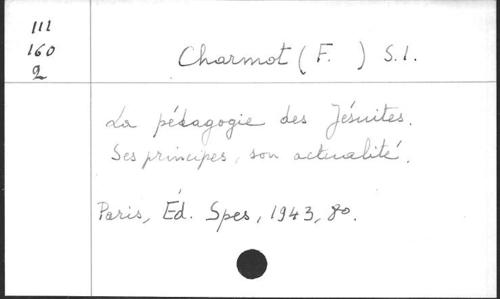 111
160
2
Charmot (F. ) S.I.
La pédagogie des Jésuites.
Ses principes, son actualité.
Paris, Éd. Spes, 1943, 8o.